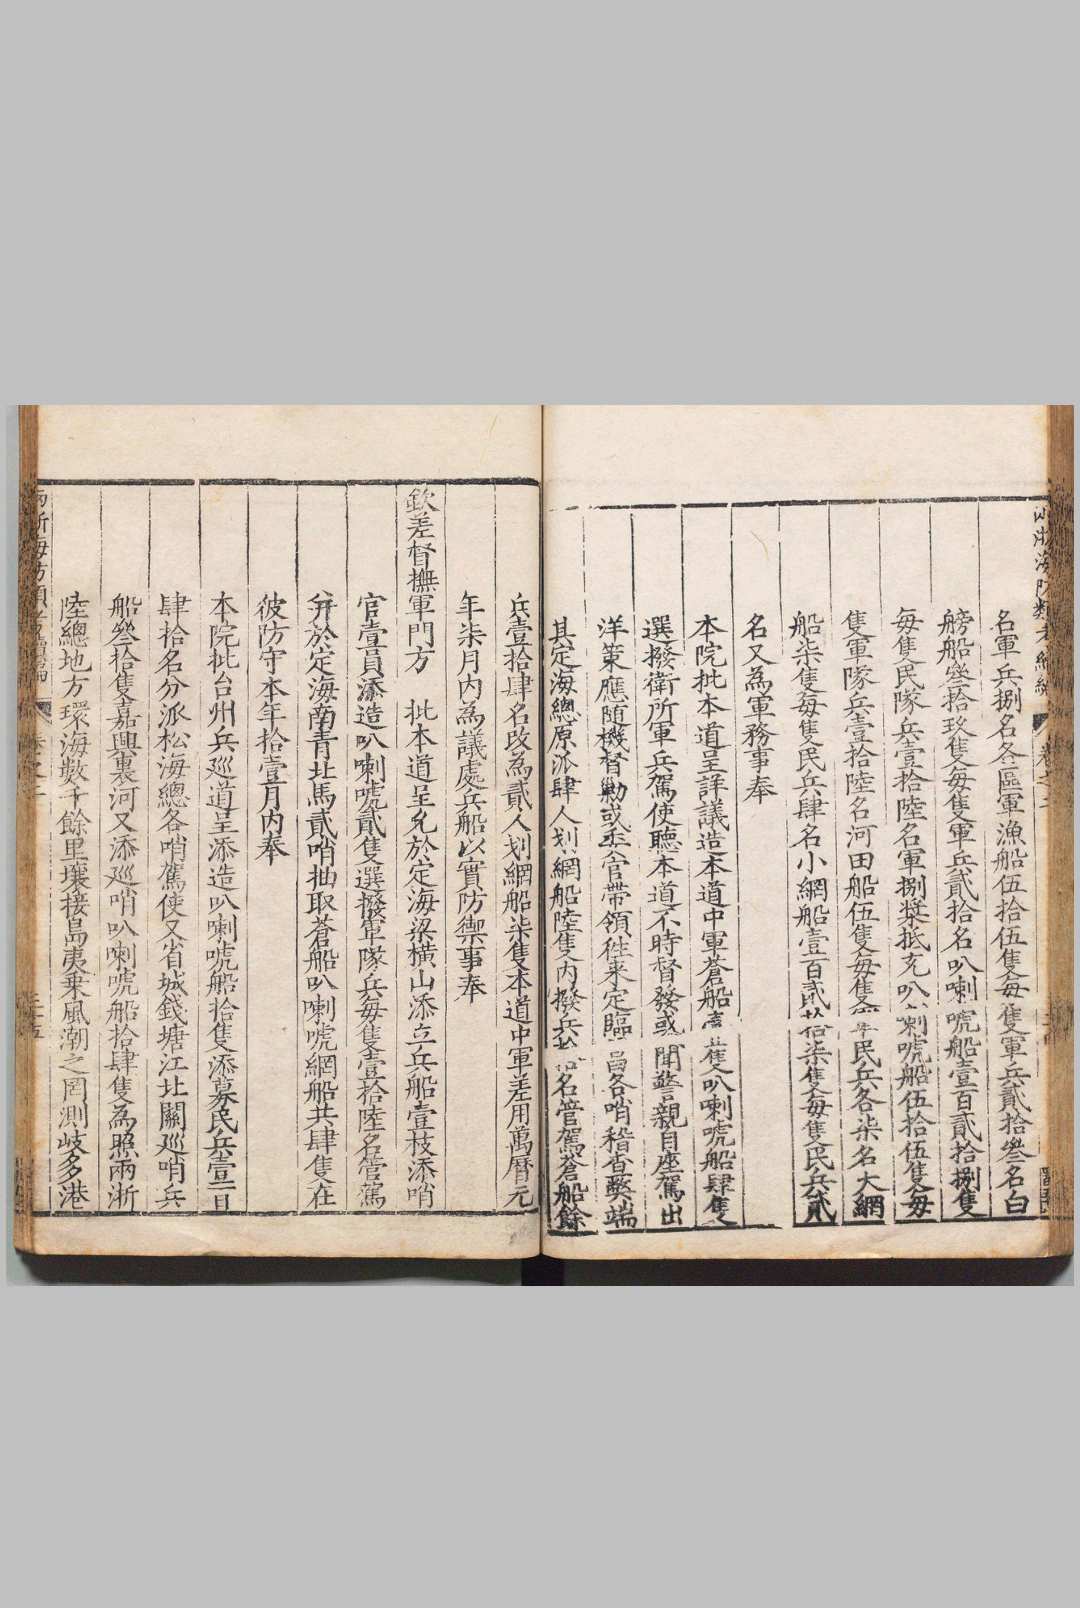 名軍兵捌名各區軍漁船伍拾伍隻每隻軍兵貳拾叄名白
艕船叄拾玖隻每隻軍兵貳拾名叭喇唬船壹百貳拾捌隻
每隻民隊兵壹拾陸名軍捌槳抵充叭喇唬船伍拾伍隻每
隻軍隊兵壹拾陸名河田船伍隻每隻軍民兵各柒名大網
船柒隻每隻民兵肆名小網船壹百貳拾柒隻每隻民兵貳
名又為軍務事奉
本院批本道呈詳議造本道中軍蒼船壹隻叭喇唬船肆隻
選撥衛所軍兵駕使聽本道不時督發或聞警親自座駕出
洋策應随機督勦或委官帶領往来定臨昌各哨稽查奬端
其定海總原派肆人划網船陸隻内撥兵拾名管駕蒼船餘
兵壹拾肆名改為貳人划網船柒隻本道中軍差用萬曆元
年柒月内為議處兵船以實防禦事奉
欽差督撫軍門方 批本道呈允於定海梁横山添立兵船壹枝添哨
官壹員添造叭喇唬貳隻選撥軍隊兵每隻壹拾陸名管駕
并於定海南青北馬貳哨抽取蒼船叭喇唬網船共肆隻在
彼防守本年拾壹月内奉
本院批台州兵廵道呈添造叭喇唬船拾隻添募民兵壹百
肆拾名分派松海總各哨駕使又省城錢塘江北關廵哨兵
船叄拾隻嘉興裏河又添廵哨叭喇唬船拾肆隻為照兩浙
陸總地方環海數千餘里壤接島夷乗風潮之罔測歧多港